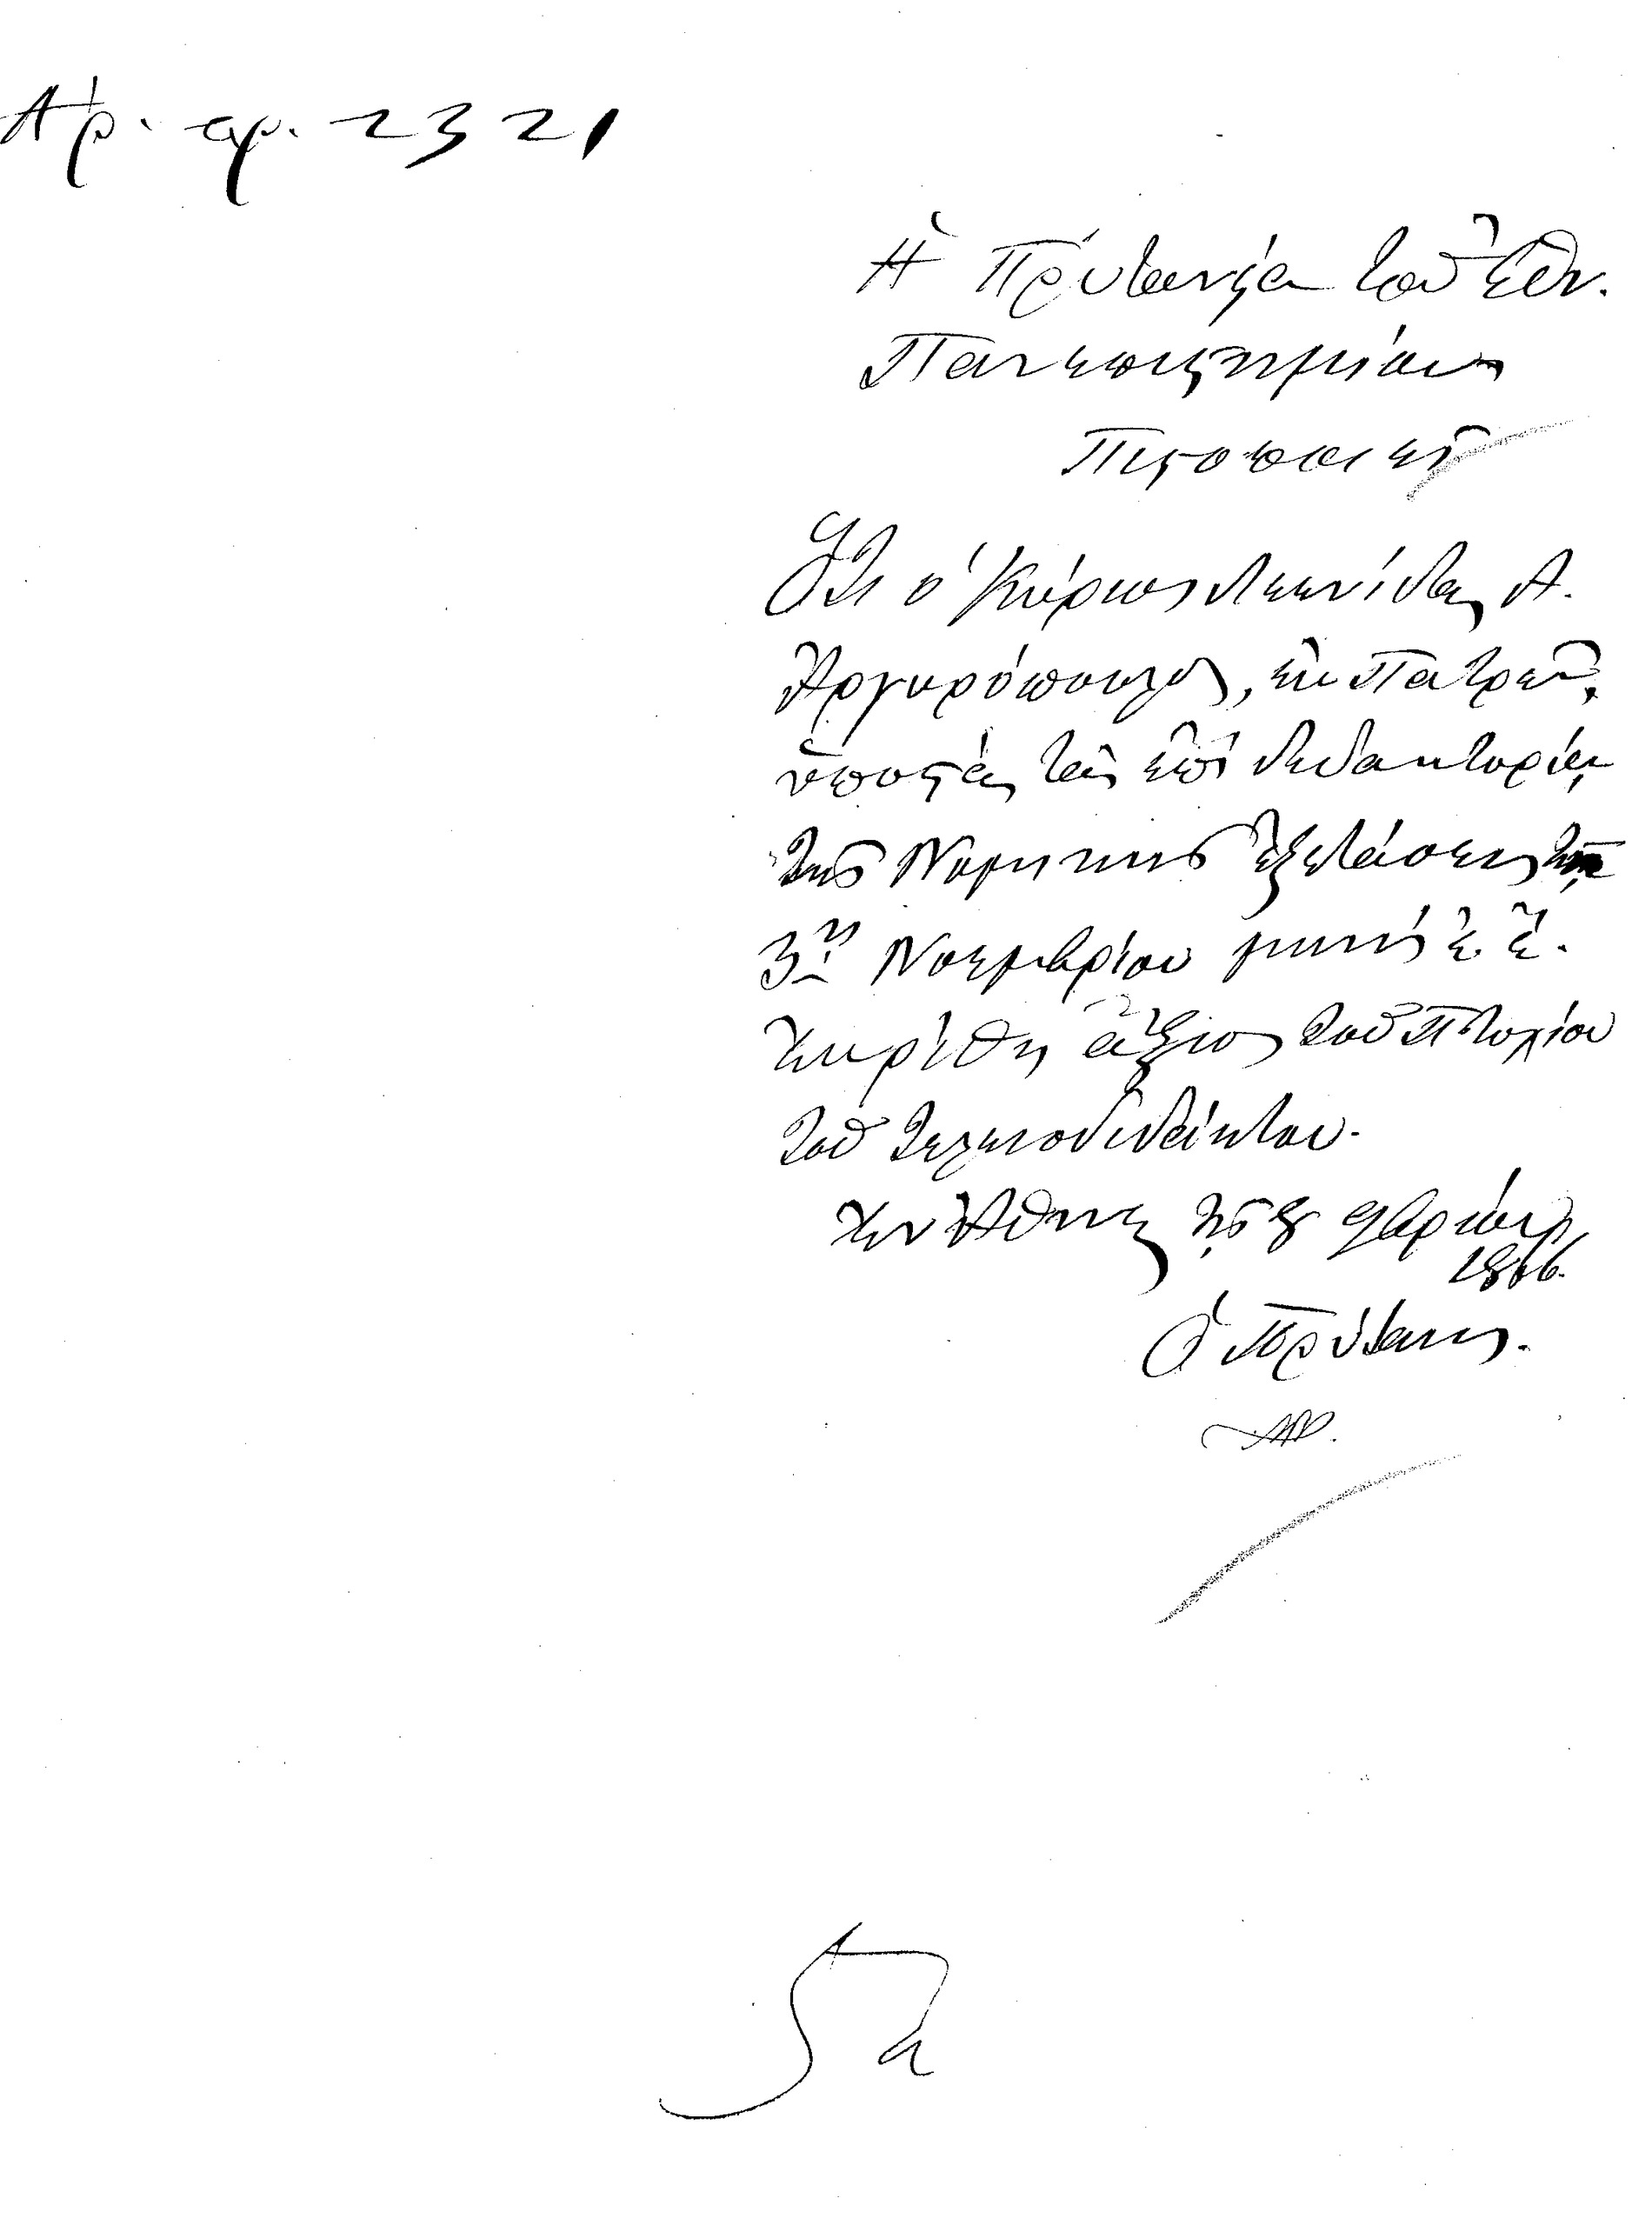 Ἀρ. πρ. 2321
Ἡ Πρυτανεία τοῦ Ἐθν.
Πανεπιστημίου
Πιστοποιεῖ
Ὅτι ὁ Κύριος Λεωνίδας Α.
Ἀργυρόπουλος, ἐκ Πατρῶν,
ὑποστὰς τὰς ἐπὶ διδακτορίᾳ
τῆς Νομικῆς ἐξετάσεις τὴν
3ην Νοεμβρίου μηνὸς ἐ. ἔ.
ἐκρίθη ἄξιος τοῦ πτυχίου
τοῦ τελειοδιδάκτου.
Ἐν Ἀθήναις τῇ 8 Φεβρουαρίου
1866.
Ὁ Πρύτανις.